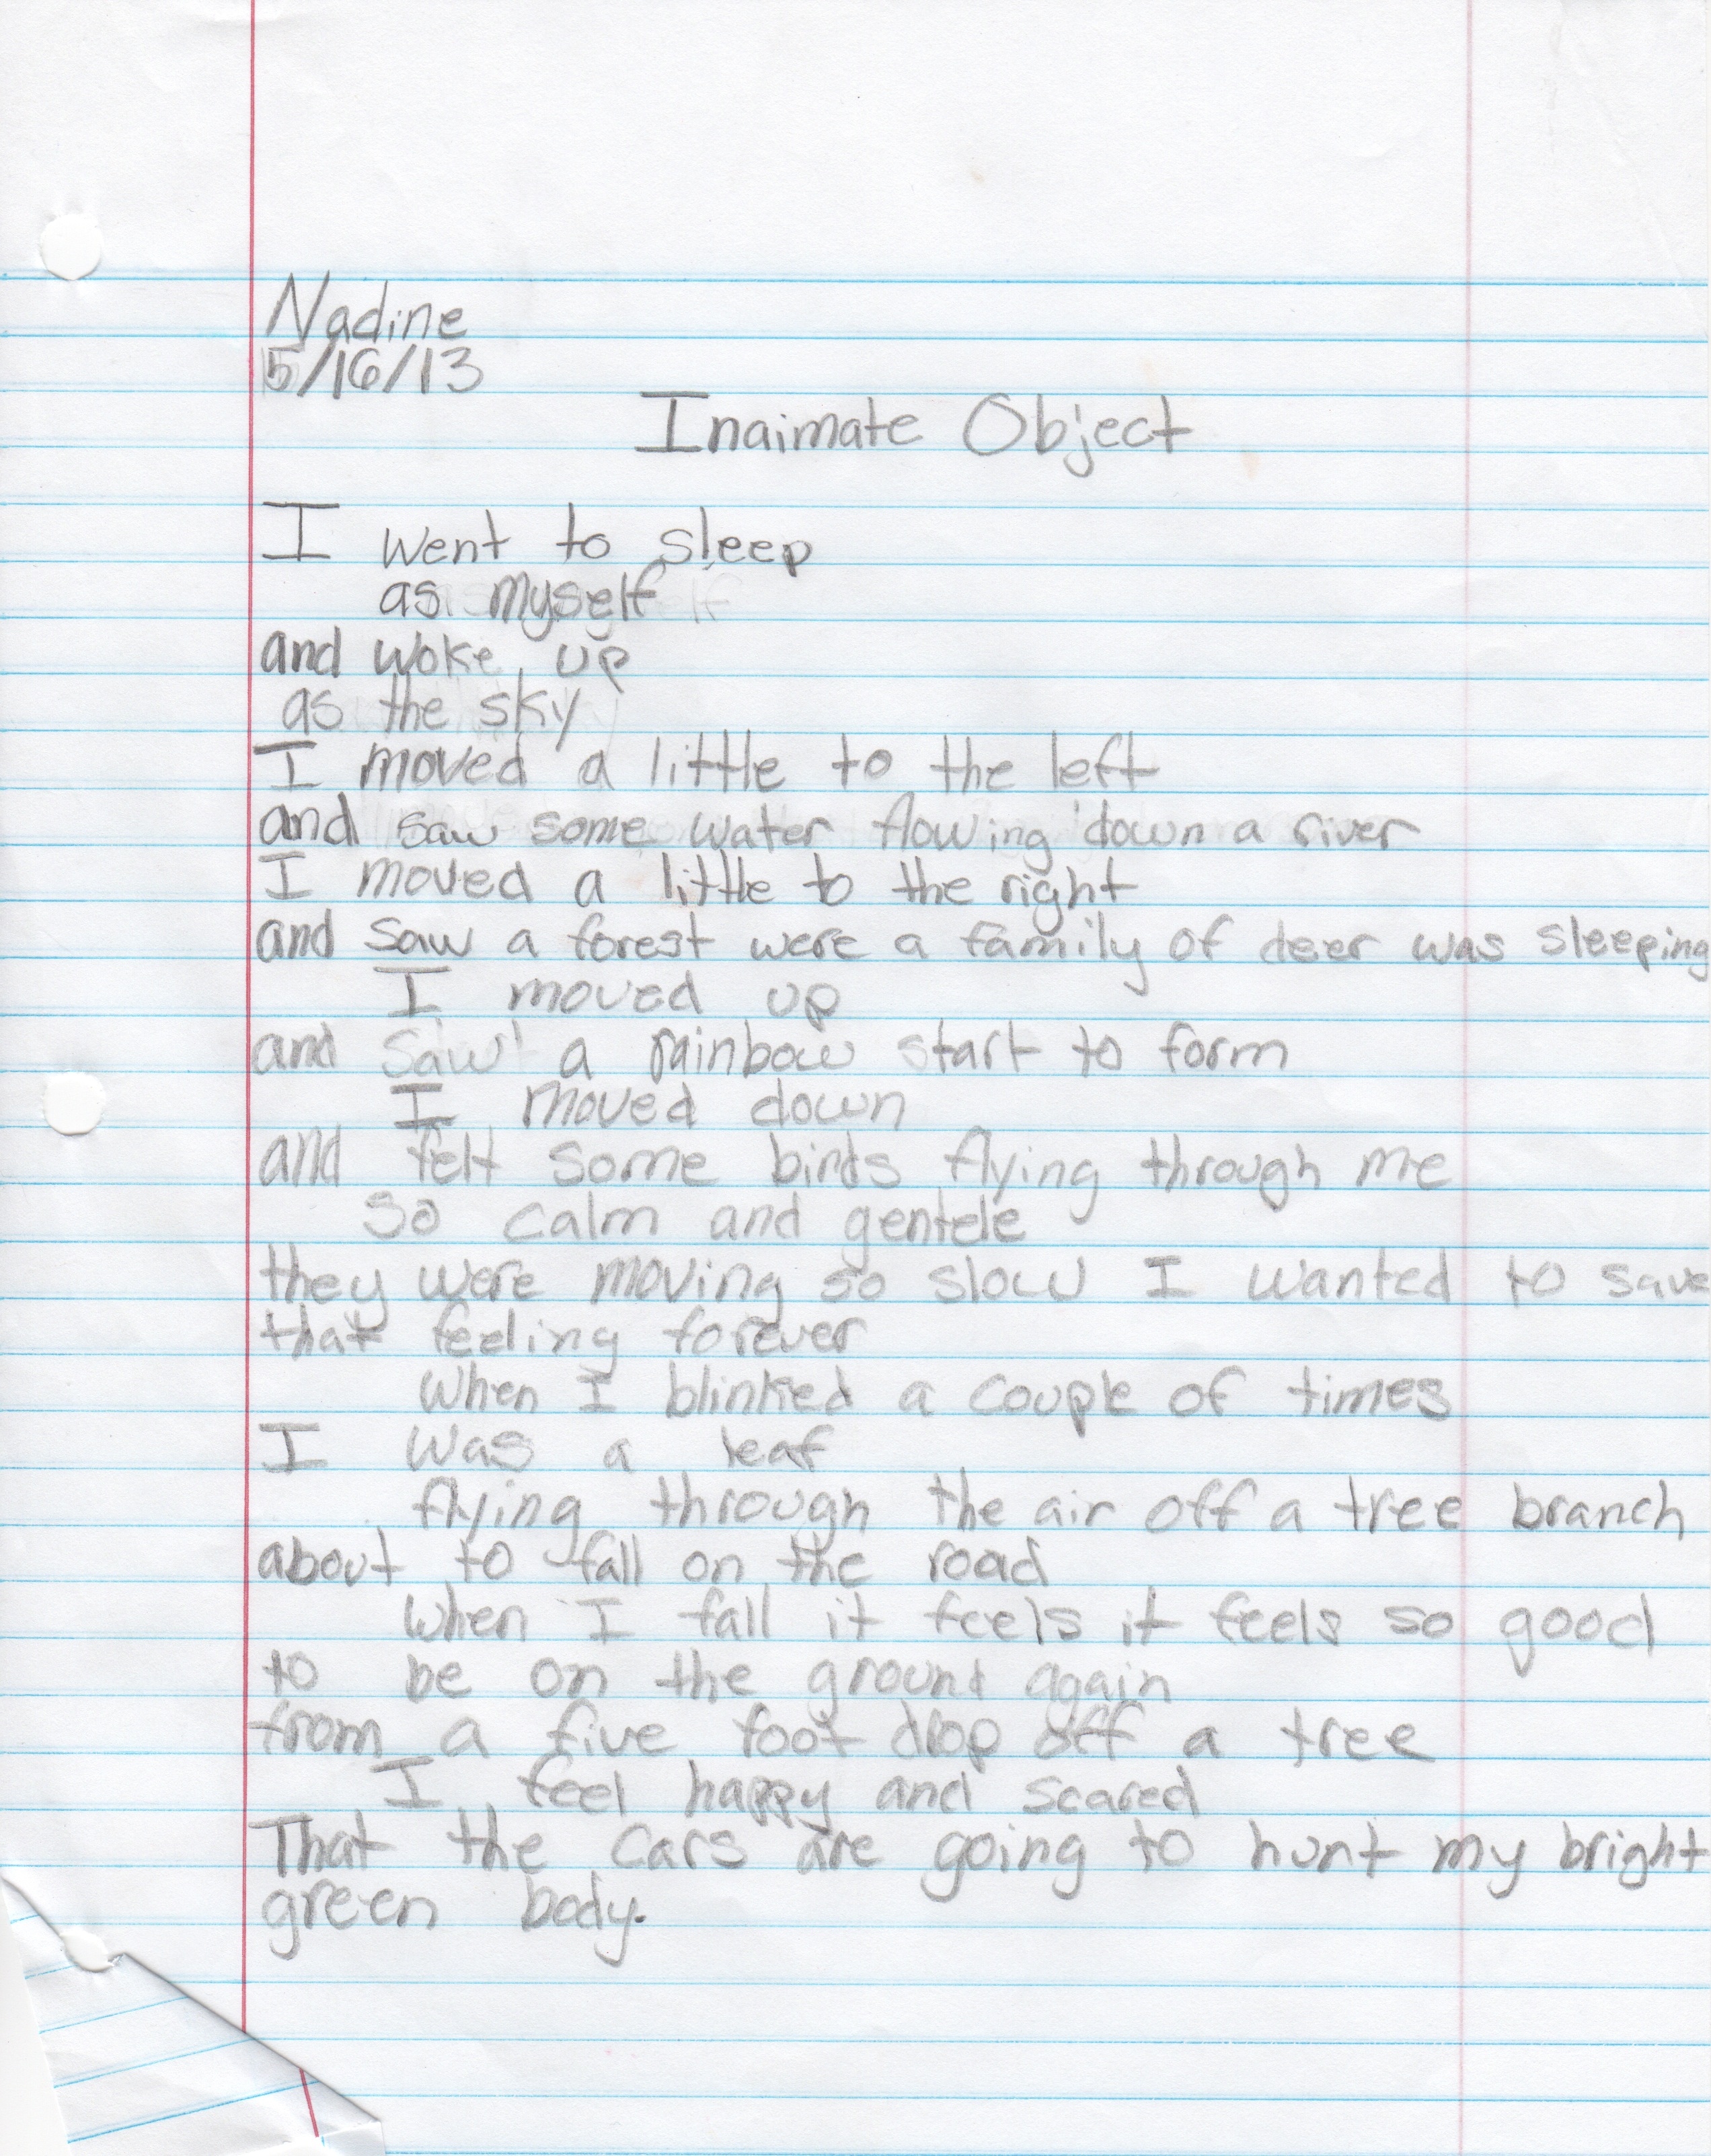 Nadine
5/16/13
Inaimate Object
I went to sleep
as myself
and woke up
as the sky
I moved a little to the left
and saw some water flowing down a river
I moved a little to the right
and saw a forest were a family of deer was sleeping
I moved up
and saw a rainbow start to form
I moved down
and felt some birds flying through me
so calm and gentele
they were moving so slow I wanted to save
that feeling forever
when I blinked a couple of times
I was a leaf
flying through the air off a tree branch
about to fall on the road
when I fall it feels it feels so good
to be on the ground again
from a five foot drop off a tree
I feel happy and scared
That the cars are going to hunt my bright
green body.